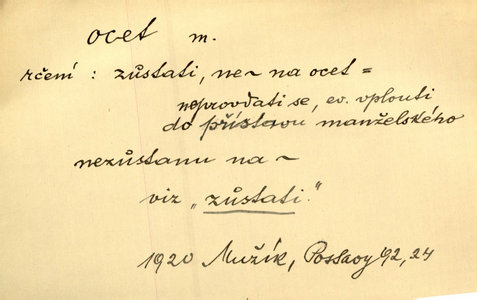 ocet m.
rčení : zůstati, ne~ na ocet =
neprovdati se, ev. vplouti
do přístavu manželského
nezůstanu na ~
viz „zůstati."
1920 Mužík, Possavy 92, 24